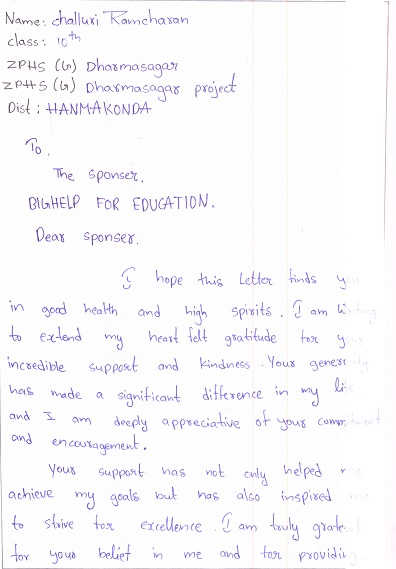 Name: challuri Ramcharan
class: 10th
ZPHS (G) Dharmasagar
ZPHS (G) Dharmasagar project
Dist : HANMAKONDA
To,
The sponser,
BIGHELP FOR EDUCATION.
Dear sponser,
I hope this Letter finds you
in good health and high spirits. I am Writing
to extend my heart felt gratitude for your
incredible support and kindness. Your generosity
has made a significant difference in my life
and I am deeply appreciative of your commitment
and encouragement.
Your support has not only helped me
achieve my goals but has also inspired me
to strive for excellence. I am truly grateful
for your belief in me and for providing